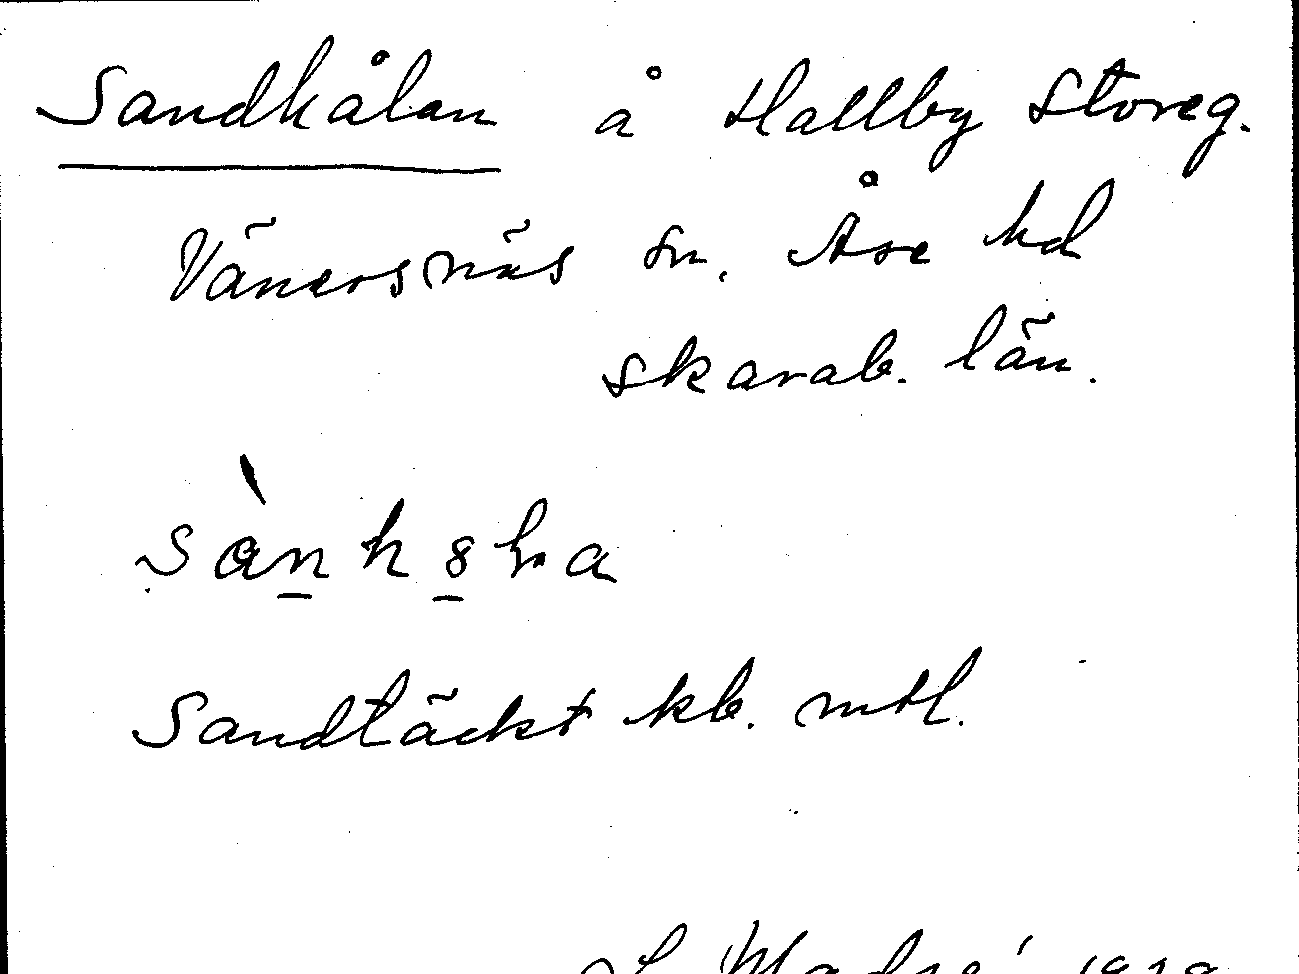 Sandhålan å Hallby Storeg.
Vänersnäs sn. Åse hd
skarab. län.
Sandtäckt kb. mtl.